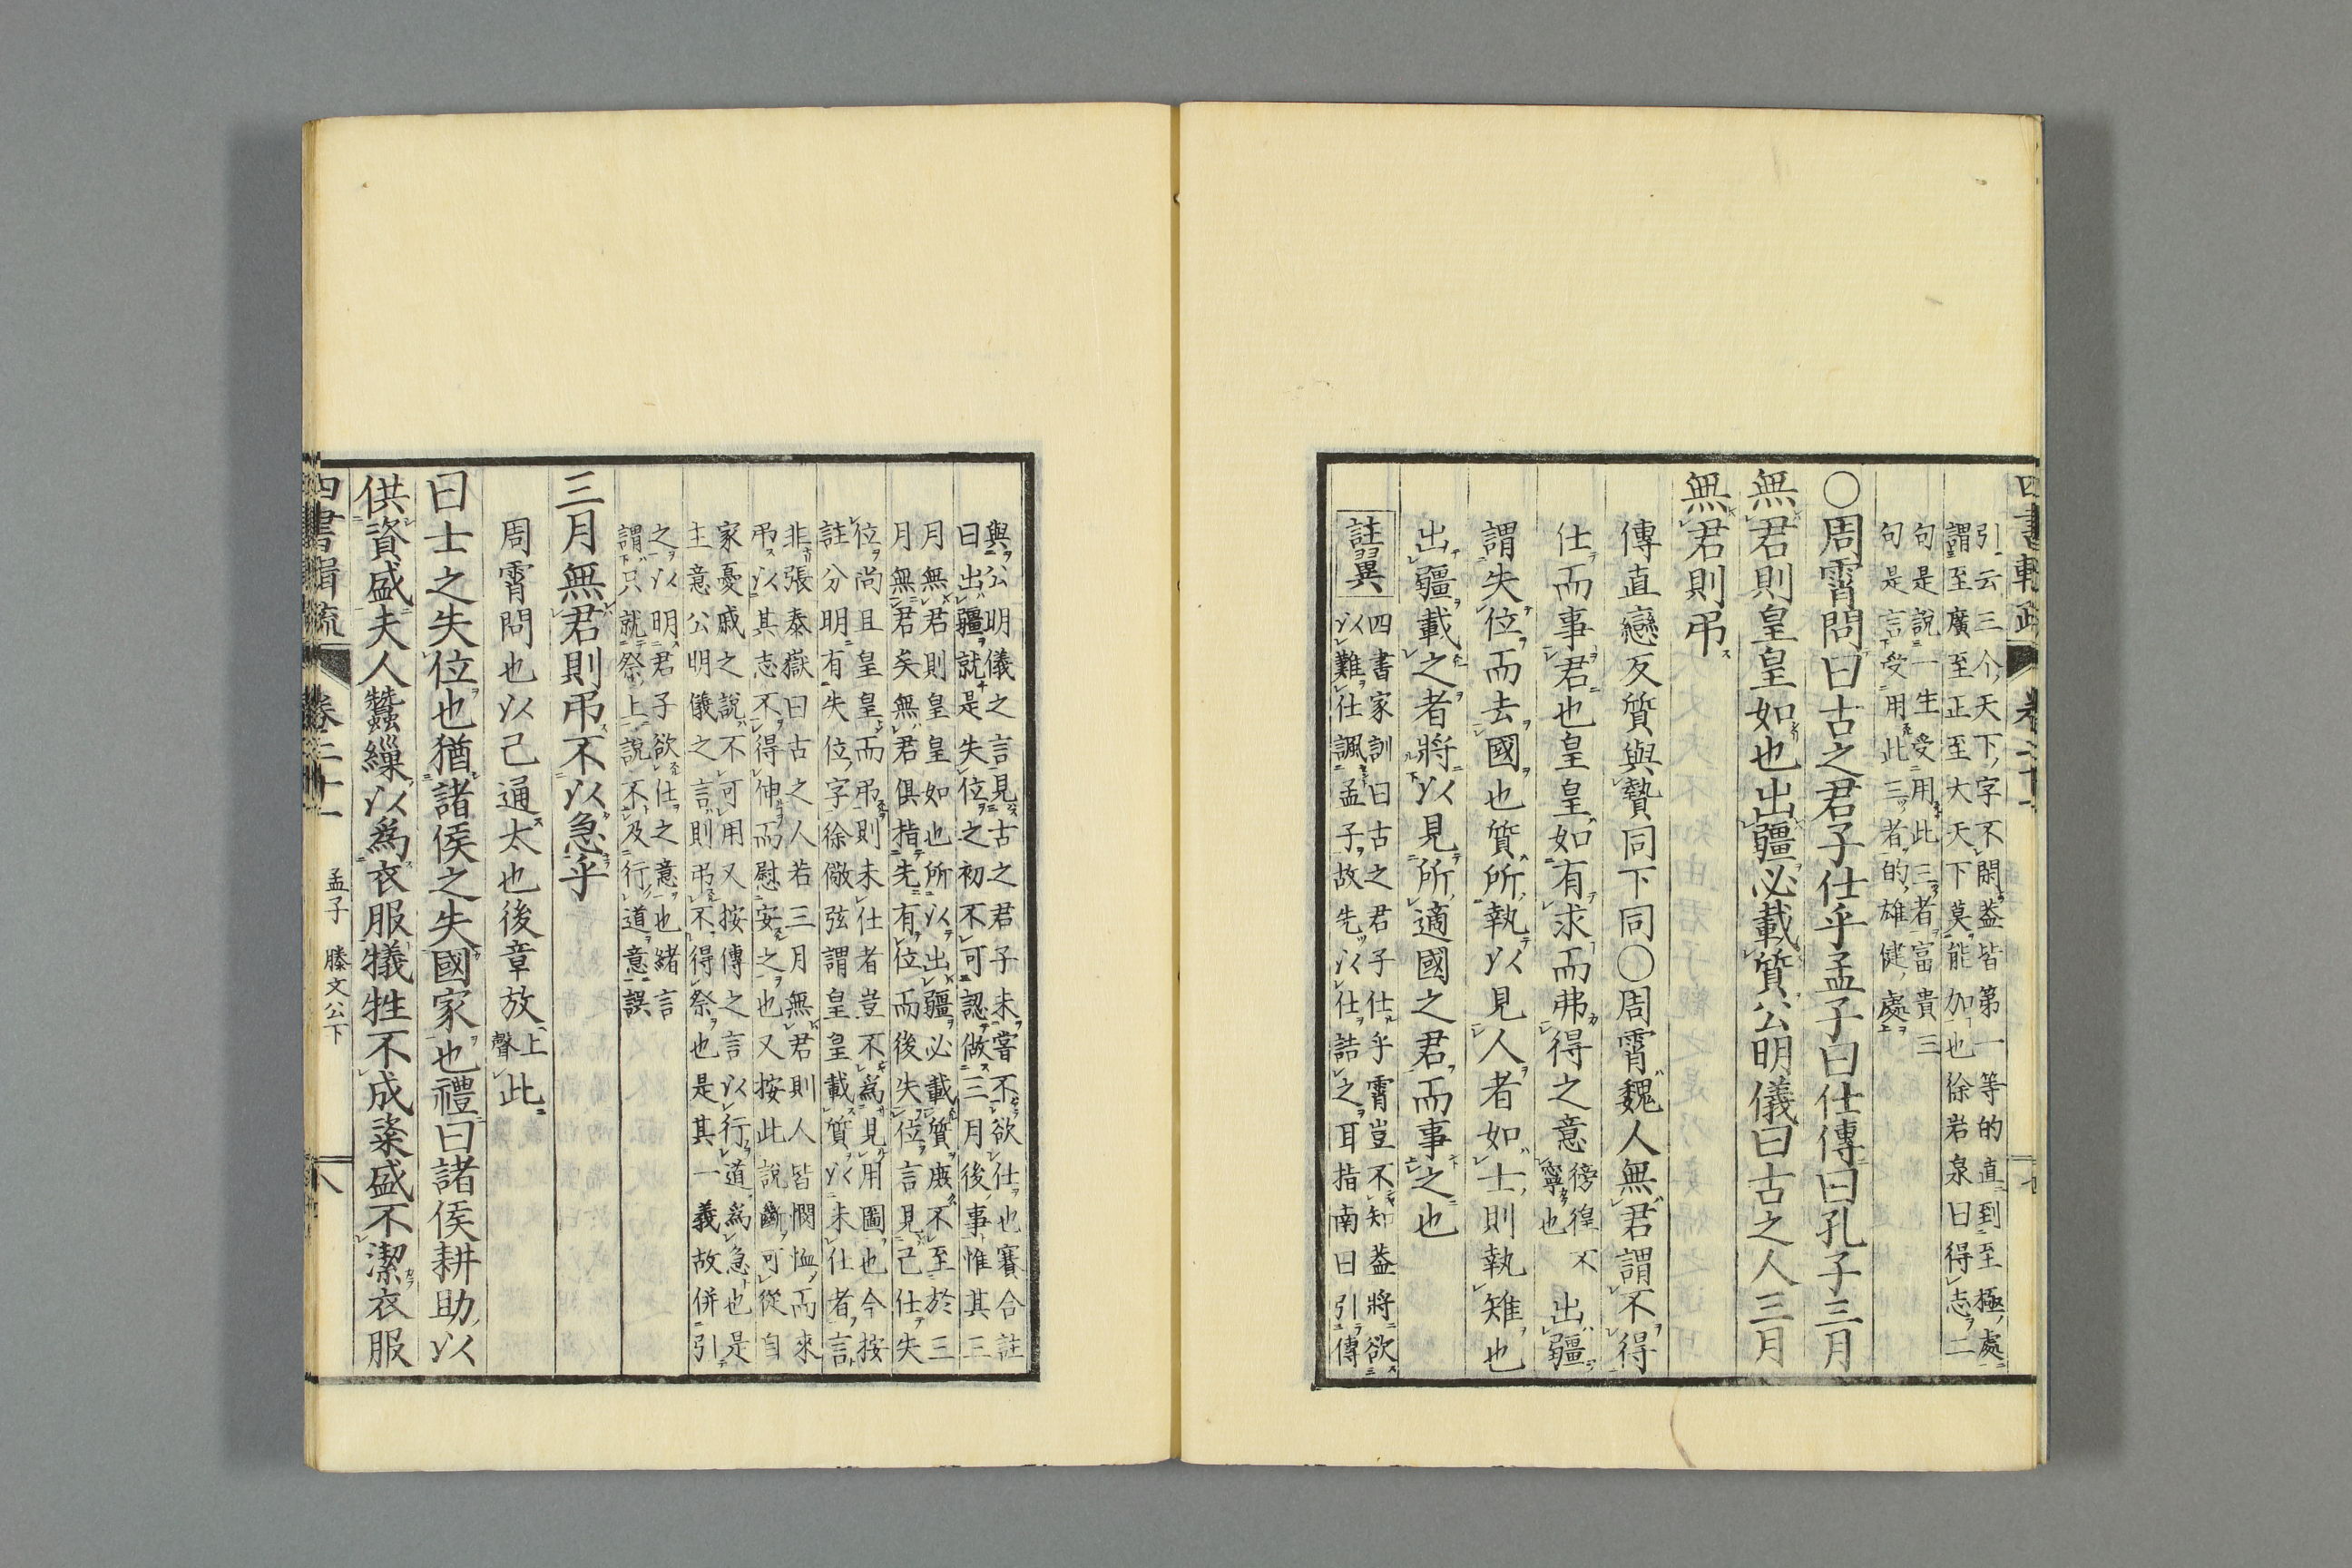 引云三个天下字不閑蓋皆第一等的直到至極處
謂至廣至正至大天下莫能加也徐岩泉曰得志二
句是說一生受用此三者富貴三
句是言受用此三者的雄健處
○周霄問曰古之君子仕乎孟子曰仕傳曰孔子三月
無君則皇皇如也出疆必載質公明儀曰古之人三月
無君則弔
傳直戀反質與贄同下同○周霄魏人無君謂不得
仕而事君也皇皇如有求而弗得之意徬徨不寧也出疆
謂失位而去國也質所執以見人者如士則執雉也
出疆載之者將以見所適國之君而事之也
註翼
四書家訓曰古之君子仕乎霄豈不知蓋將欲
以難仕諷孟子故先以仕詰之耳指南曰引傳
與公明儀之言見古之君子未嘗不欲仕也賽合註
曰出疆就是失位之初不可認做三月後事惟其三
月無君則皇皇如也所以出疆必載質庶不至於三
月無君矣無君俱指先有位而後失位言見已仕失
位尚且皇皇而弔則未仕者豈不為見用圖也今按
註分明有失位字徐儆弦謂皇皇載質以未仕者言
非張泰嶽曰古之人若三月無君則人皆憫恤而來
弔以其志不得伸而慰安之也又按此說斷可從自
家憂戚之說不可用又按傳之言以行道為急也是
主意公明儀之言則弔不得祭也是其一義故併引
之以明君子欲仕之意也緒言
謂只就祭上說不及行道意誤
三月無君則弔不以急乎
周霄問也以已通太也後章放上聲此
曰士之失位也猶諸侯之失國家也禮曰諸侯耕助以
供資盛夫人蠶繅以為衣服犧牲不成粢盛不潔衣服
孟子 滕文公下
八